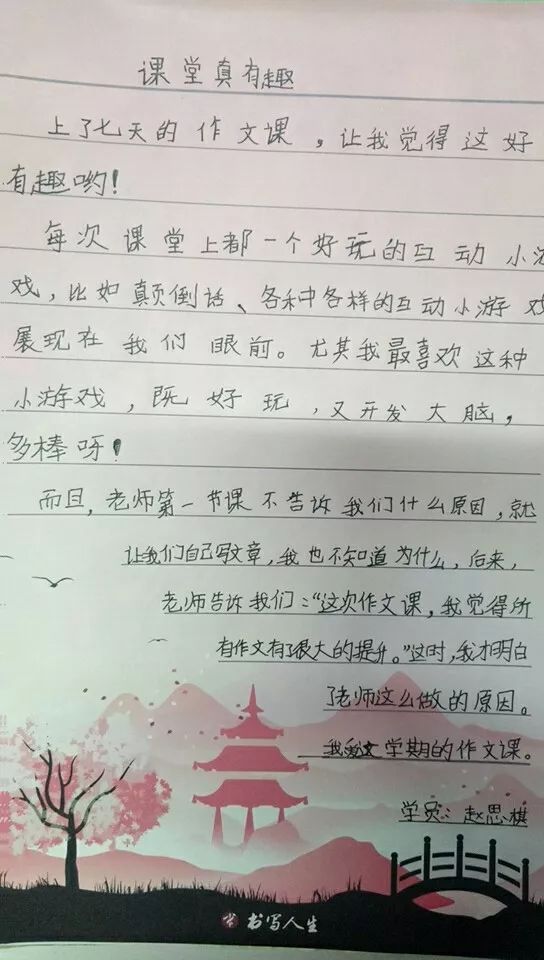 课堂真有趣
上了七天的作文课，让我觉得这好
有趣哟！
每次课堂上都一个好玩的互动小游
戏，比如颠倒话、各种各样的互动小游戏
展现在我们眼前。尤其我最喜欢这种
小游戏，既好玩，又开发大脑，
多棒呀！
而且，老师第一节课不告诉我们什么原因，就
让我们自己写文章，我也不知道为什么，后来，
老师告诉我们：“这次作文课，我觉得所
有作文有了很大的提升。”这时，我才明白
了老师这么做的原因。
我 学期的作文课。
学员：赵思棋
书写人生